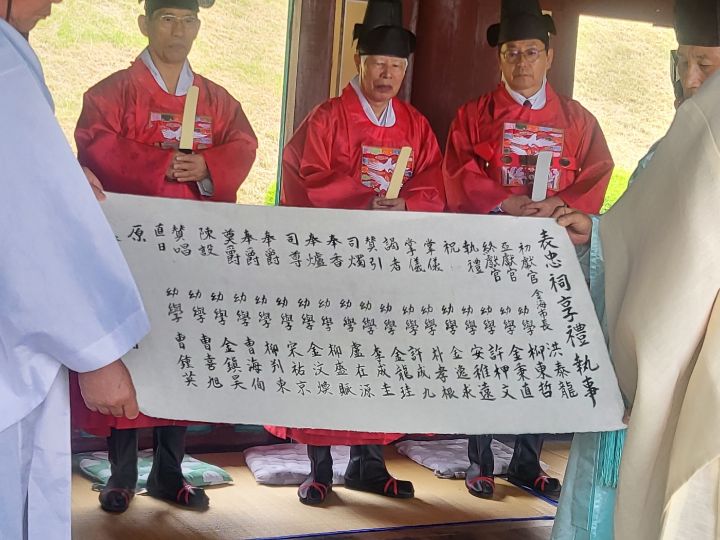 表忠祠享禮執事
初獻官 金海市長 洪泰龍
亞獻官 幼學 柳東哲
終獻官 幼學 金秉直
執禮 幼學 許柙文
祝 幼學 安稚遠
掌儀 幼學 金逸求
掌儀 幼學 朴孝根
謁者 幼學 許成九
贊引 幼學 金龍珪
司燭 幼學 李成圭
奉香 幼學 盧在源
奉爐 幼學 柳盛賑
司尊 幼學 金汶煥
奉爵 幼學 宋祐京
奉爵 幼學 柳東
奠爵 幼學 曹海
陳設 幼學 金鎭昊
贊唱 幼學 曹喜旭
直日 幼學 曹鍾英
原